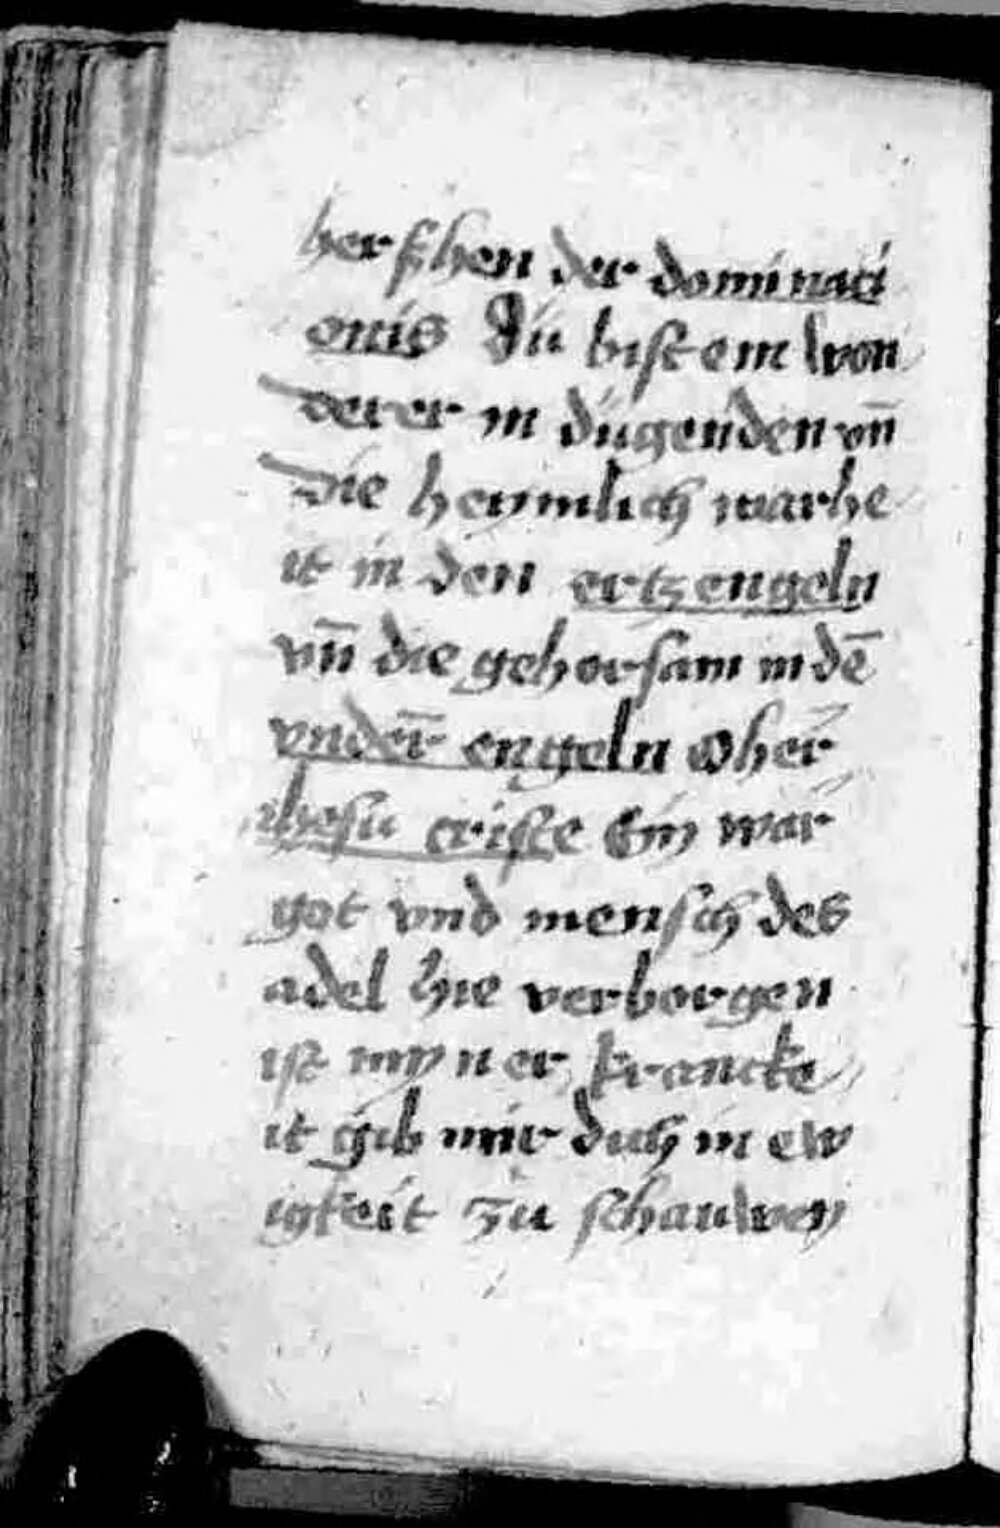 herschen der dominaci
onis Du bist ein won
derer in dugenden vn̄
die heymlich warhe
it in den ertzengeln
vn̄ die gehorsam in dē
vnder̄ engeln O her̄
ihesu criste Ein war
got vnd mensch des
adel hie verborgen
ist myner krancke
it gib mir dich in ew
igkeit zu schauwen